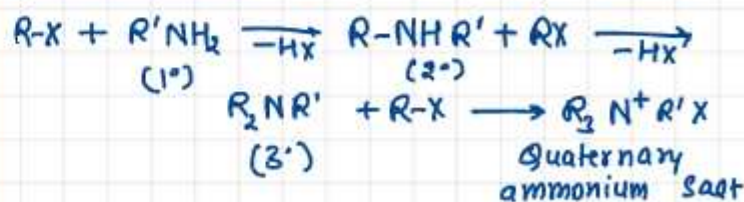 R-X + R'NH₂ —-HX→ R-NHR' + RX —-HX→
(1°) (2°)
R₂NR' + R-X ⟶ R₃N⁺R'X
(3°) Quaternary
ammonium Salt